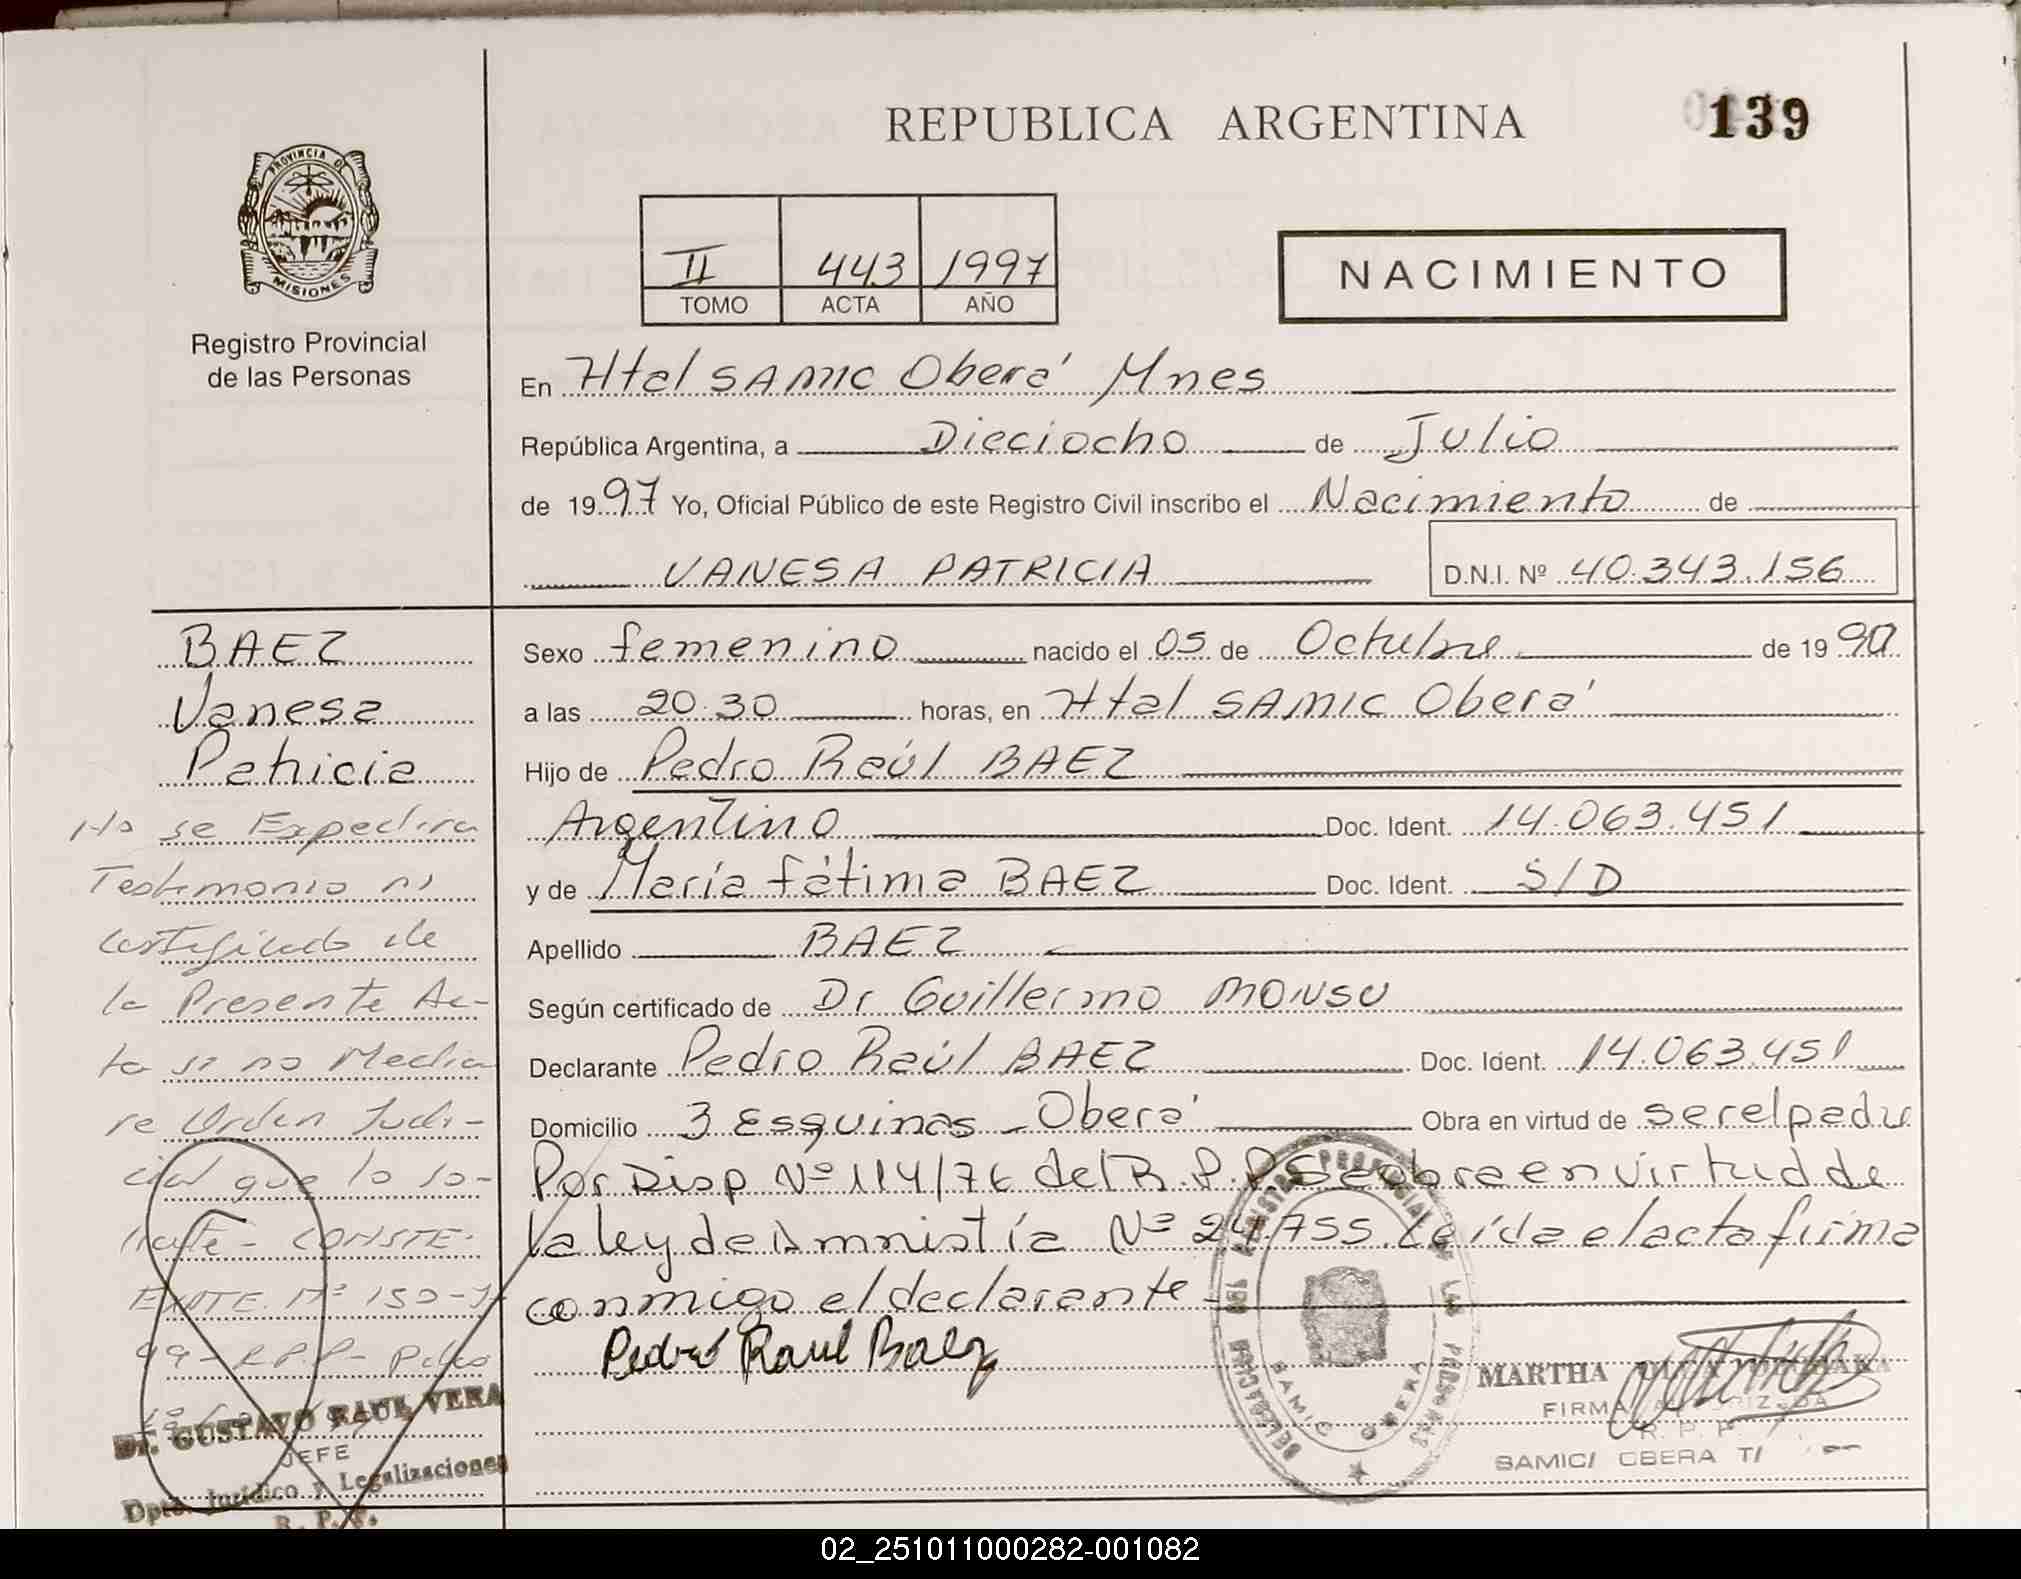 REPUBLICA ARGENTINA
139
PROVINCIA DE
MISIONES
Registro Provincial
de las Personas
II 443 1997
TOMO ACTA AÑO
NACIMIENTO
En Htal SAMIC Oberá Mnes
República Argentina, a Dieciocho de Julio
de 1997 Yo, Oficial Público de este Registro Civil inscribo el Nacimiento de
VANESA PATRICIA D.N.I. Nº 40.343.156
BAEZ
Vanesa
Patricia
No se Expedira
Testimonio ni
certificado de
la Presente Ac-
ta si no Media
re Orden Judi-
cial que lo so-
licite - CONSTE.
EXPTE. Nº 150-
99 - R.P.P - Pdas
Dr. GUSTAVO RAUL VERA
JEFE
Dpto. Jurídico y Legalizaciones
R. P. P.
Sexo femenino nacido el 05 de Octubre de 1990
a las 20.30 horas, en Htal SAMIC Oberá
Hijo de Pedro Raúl BAEZ
Argentino Doc. Ident. 14.063.451
y de María fátima BAEZ Doc. Ident. S/D
Apellido BAEZ
Según certificado de Dr Guillermo MONSU
Declarante Pedro Raúl BAEZ Doc. Ident. 14.063.451
Domicilio 3 Esquinas - Oberá Obra en virtud de ser el padre
Por Disp Nº 114/76 del R.P.P. Se obra en virtud de
la ley de Amnistía Nº 24.755. Leída el acta firma
conmigo el declarante
Pedro Raul Baez
REGISTRO PROVINCIAL DE LAS PERSONAS
DELEGACION
SAMIC OBERA
MARTHA
FIRMA AUTORIZADA
R. P. P.
SAMIC/ OBERA
02_251011000282-001082